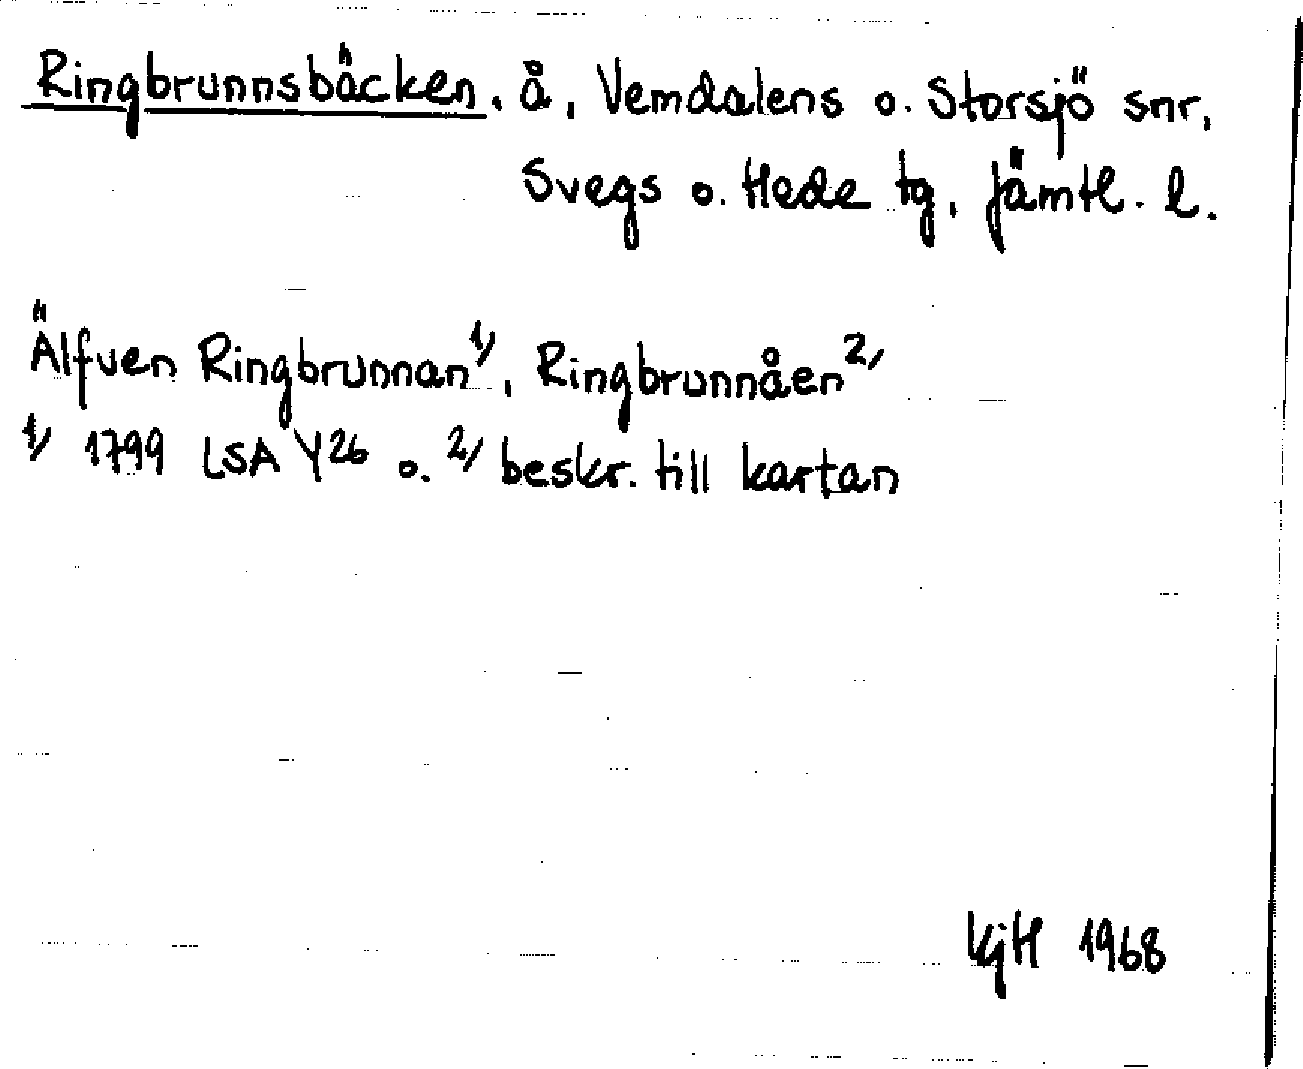 Ringbrunnsbäcken, å, Vemdalens o. Storsjö snr,
Svegs o. Hede tg, Jämtl. l.
Älfven Ringbrunnan 1/, Ringbrunnåen 2/
1/ 1799 LSA Y26 o. 2/ beskr. till kartan
KjH 1968